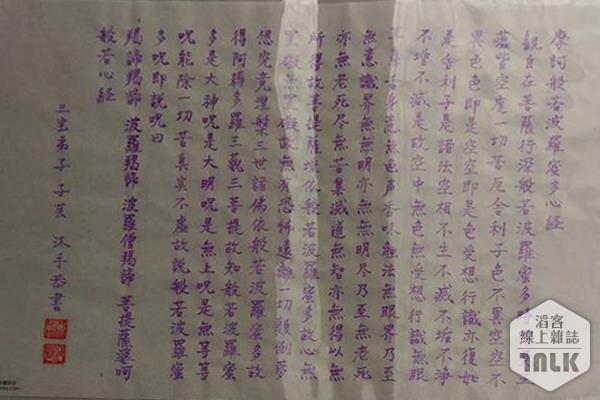 摩訶般若波羅蜜多心經
觀自在菩薩行深般若波羅蜜多時
蘊皆空度一切苦厄舍利子色不異空空不
異色色即是空空即是色受想行識亦復如
是舍利子是諸法空相不生不滅不垢不淨
不增不減是故空中無色無受想行識無眼
耳鼻舌身意無色声香味觸法無眼界乃至
無意識界無無明亦無無明尽乃至無老死
亦無老死尽無苦集滅道無智亦無得以無
所得故菩提薩埵依般若波羅蜜多故心無
罣礙無罣礙故無有恐怖遠離一切顛倒夢
想究竟涅槃三世諸佛依般若波羅蜜多故
得阿耨多羅三藐三菩提故知般若波羅蜜
多是大神呪是大明呪是無上呪是無等等
呪能除一切苦真实不虛故說般若波羅蜜
多呪即說呪曰
羯諦羯諦 波羅羯諦 波羅僧羯諦 菩提薩婆呵
般若心經
三宝弟子 子芸 沐手恭書
滔客
線上雜誌
TALK